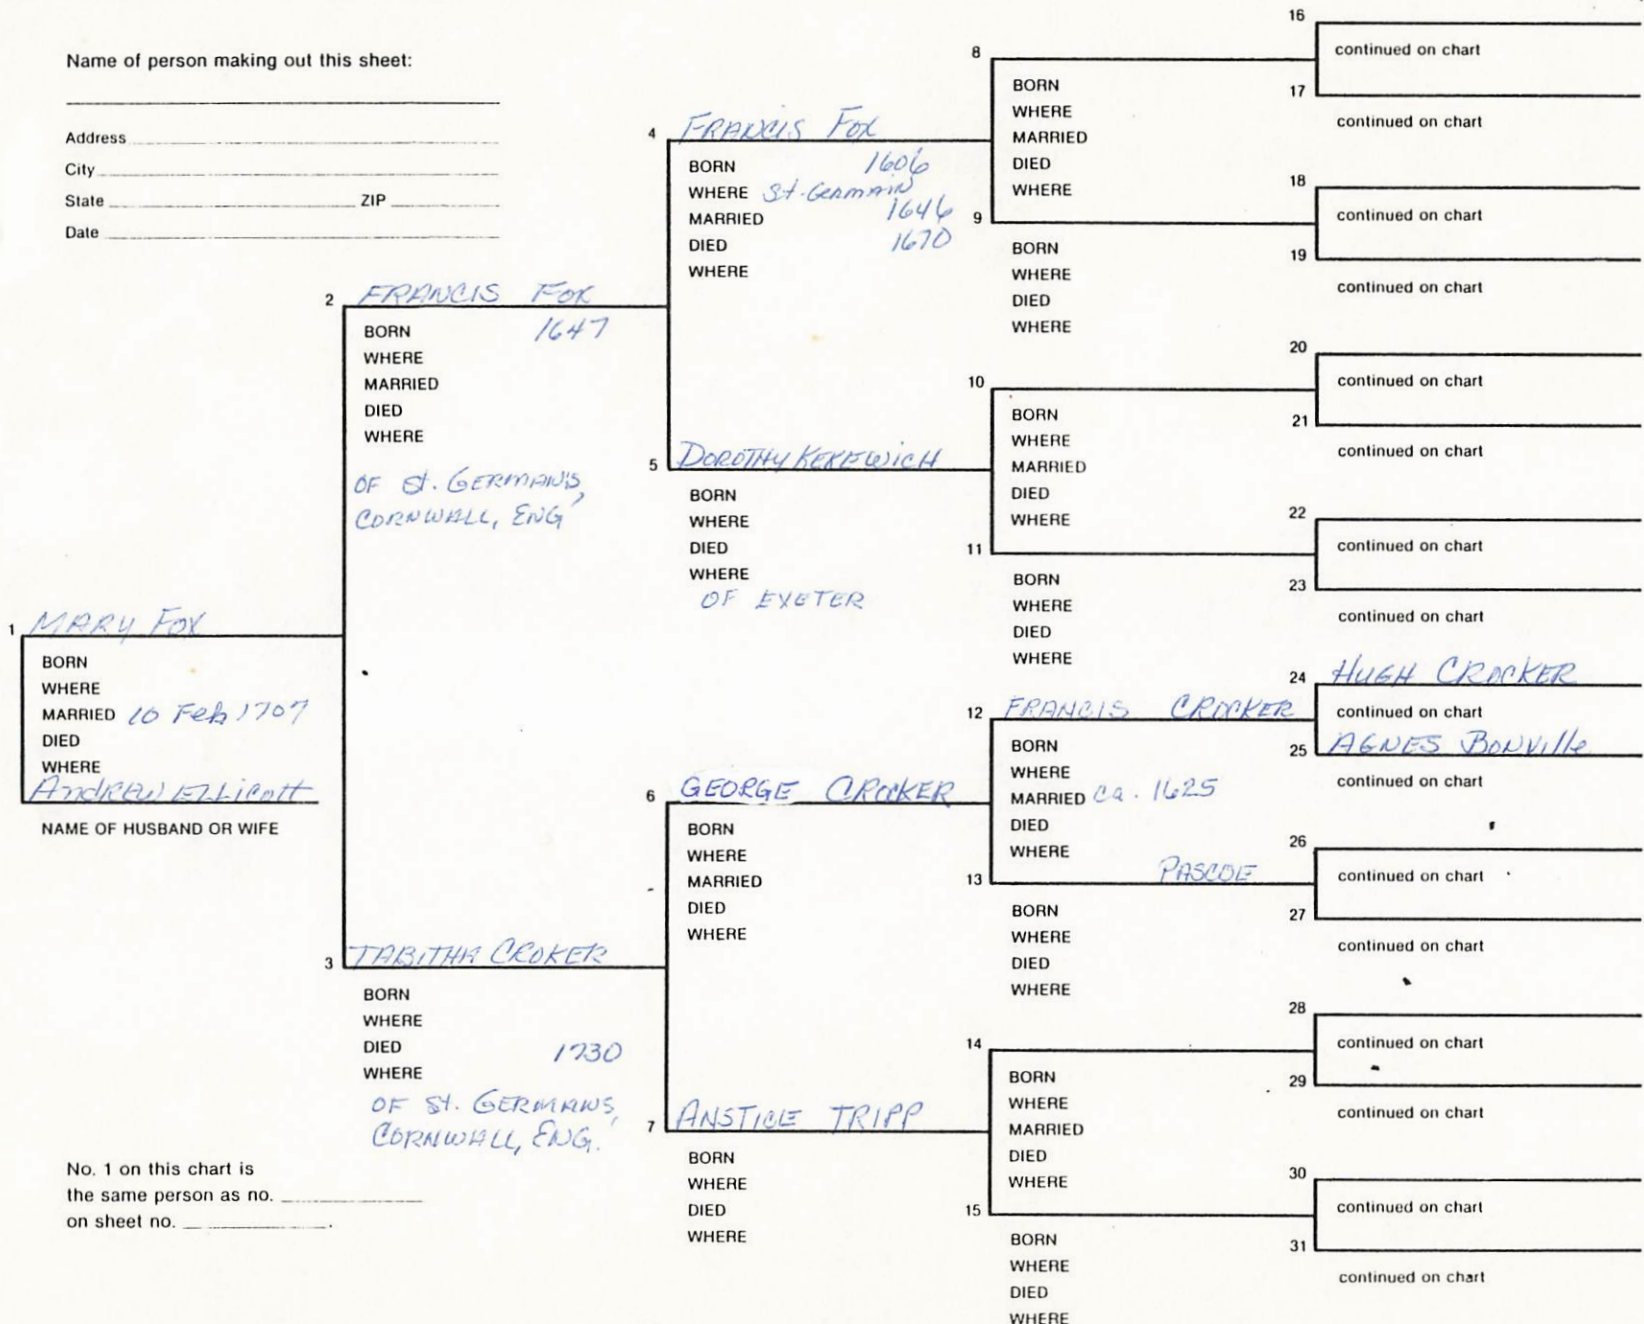 Name of person making out this sheet:
Address
City
State ZIP
Date
1 MARY FOX
BORN
WHERE
MARRIED 10 Feb 1707
DIED
WHERE
Andrew Ellicott
NAME OF HUSBAND OR WIFE
No. 1 on this chart is
the same person as no.
on sheet no. .
2 FRANCIS FOX
BORN 1647
WHERE
MARRIED
DIED
WHERE
OF St. GERMAN'S,
CORNWALL, ENG
3 TABITHA CROKER
BORN
WHERE
DIED 1730
WHERE
OF St. GERMANS,
CORNWALL, ENG.
4 FRANCIS FOX
BORN 1606
WHERE St. Germain
MARRIED 1646
DIED 1670
WHERE
5 DOROTHY KEKEWICH
BORN
WHERE
DIED
WHERE
OF EXETER
6 GEORGE CROCKER
BORN
WHERE
MARRIED
DIED
WHERE
7 ANSTICE TRIPP
BORN
WHERE
DIED
WHERE
8
BORN
WHERE
MARRIED
DIED
WHERE
9
BORN
WHERE
DIED
WHERE
10
BORN
WHERE
MARRIED
DIED
WHERE
11
BORN
WHERE
DIED
WHERE
12 FRANCIS CROCKER
BORN
WHERE
MARRIED ca. 1625
DIED
WHERE
13 PASCOE
BORN
WHERE
DIED
WHERE
14
BORN
WHERE
MARRIED
DIED
WHERE
15
BORN
WHERE
DIED
WHERE
16
continued on chart
17
continued on chart
18
continued on chart
19
continued on chart
20
continued on chart
21
continued on chart
22
continued on chart
23
continued on chart
24 HUGH CROCKER
continued on chart
25 AGNES BONVIlle
continued on chart
26
continued on chart
27
continued on chart
28
continued on chart
29
continued on chart
30
continued on chart
31
continued on chart